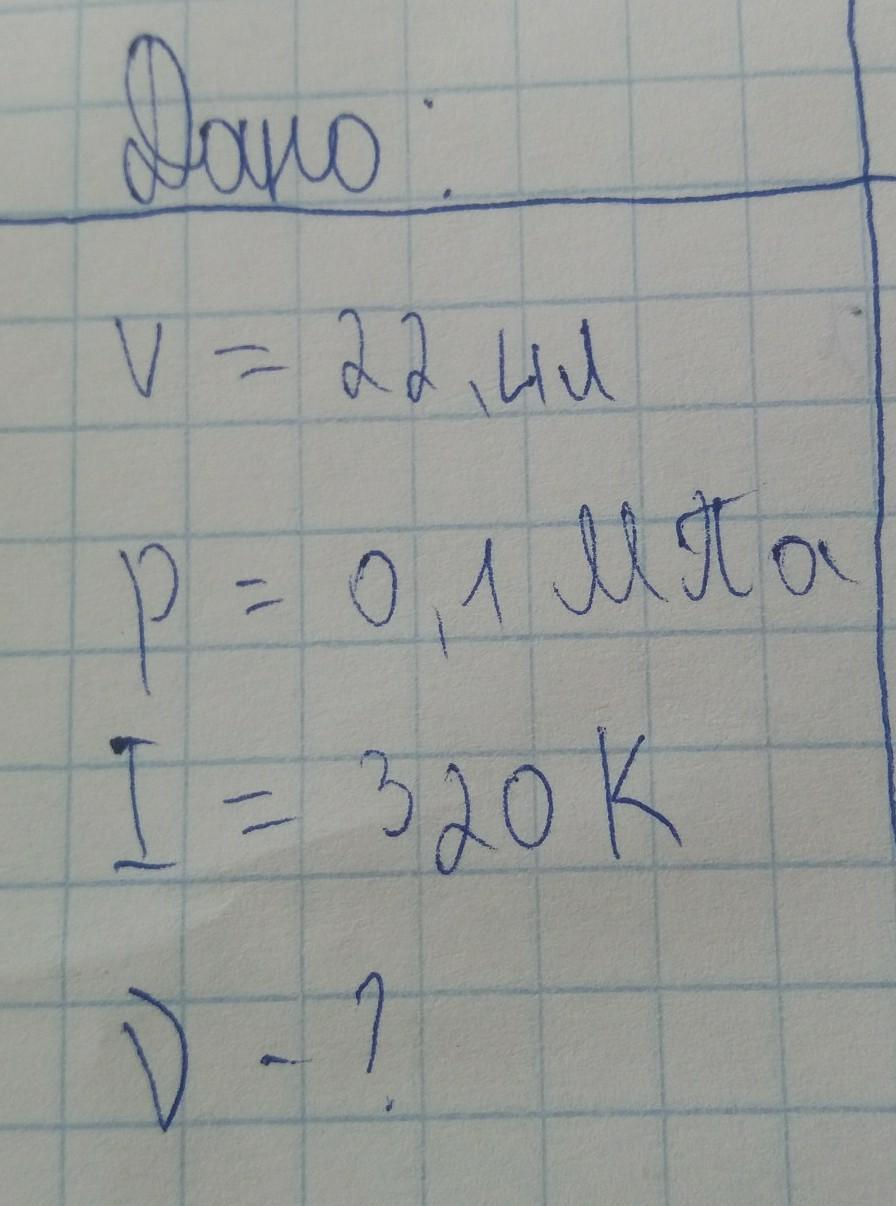 Дано:
V = 22,4л
p = 0,1 МПа
I = 320 К
ν - ?